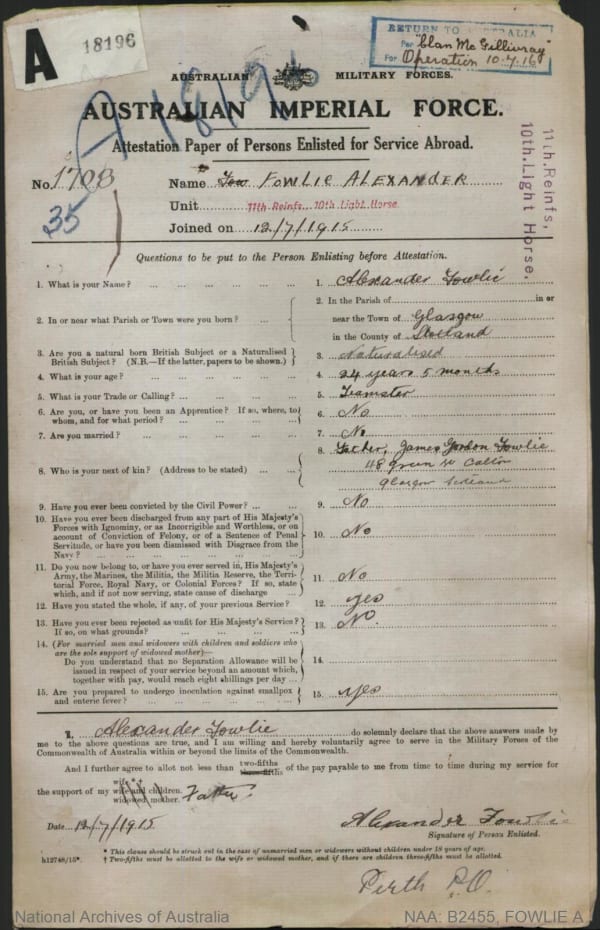 A 18196
RETURN TO AUSTRALIA
Per "Clan McGillivray"
For Operation 10.7.16
A 18196
AUSTRALIAN MILITARY FORCES.
AUSTRALIAN IMPERIAL FORCE.
Attestation Paper of Persons Enlisted for Service Abroad.
No. 1708
35
Name Fow FOWLIE ALEXANDER
Unit 11th Reinfs. 10th Light Horse
Joined on 12/7/1915
11th. Reinfs,
10th. Light Horse.
Questions to be put to the Person Enlisting before Attestation.
1. What is your Name? ... ... ... ... ... ... 1. Alexander Fowlie
2. In or near what Parish or Town were you born? ... 2. In the Parish of in or
near the Town of Glasgow
in the County of Scotland
3. Are you a natural born British Subject or a Naturalised
British Subject? (N.B.—If the latter, papers to be shown.) 3. Naturalised
4. What is your age? 4. 24 years 5 months
5. What is your Trade or Calling? 5. Teamster
6. Are you, or have you been an Apprentice? If so, where, to
whom, and for what period? 6. No
7. Are you married? 7. No
8. Who is your next of kin? (Address to be stated) 8. Father, James Gordon Fowlie
48 Green St Calton
Glasgow Scotland
9. Have you ever been convicted by the Civil Power? 9. No
10. Have you ever been discharged from any part of His Majesty's
Forces with Ignominy, or as Incorrigible and Worthless, or on
account of Conviction of Felony, or of a Sentence of Penal
Servitude, or have you been dismissed with Disgrace from the
Navy? 10. No
11. Do you now belong to, or have you ever served in, His Majesty's
Army, the Marines, the Militia, the Militia Reserve, the Terri-
torial Force, Royal Navy, or Colonial Forces? If so, state
which, and if not now serving, state cause of discharge 11. No
12. Have you stated the whole, if any, of your previous Service? 12. yes
13. Have you ever been rejected as unfit for His Majesty's Service?
If so, on what grounds? 13. No.
14. (For married men and widowers with children and soldiers who
are the sole support of widowed mother)—
Do you understand that no Separation Allowance will be
issued in respect of your service beyond an amount which,
together with pay, would reach eight shillings per day 14.
15. Are you prepared to undergo inoculation against smallpox
and enteric fever? 15. yes
I, Alexander Fowlie do solemnly declare that the above answers made by
me to the above questions are true, and I am willing and hereby voluntarily agree to serve in the Military Forces of the
Commonwealth of Australia within or beyond the limits of the Commonwealth.
And I further agree to allot not less than two-fifths three-fifths of the pay payable to me from time to time during my service for
the support of my wife*† wife and children. widowed mother. Father
Date 12/7/1915
Alexander Fowlie
Signature of Person Enlisted.
* This clause should be struck out in the case of unmarried men or widowers without children under 18 years of age.
h12748/15*. † Two-fifths must be allotted to the wife or widowed mother, and if there are children three-fifths must be allotted.
Perth P.O.
National Archives of Australia NAA: B2455, FOWLIE A